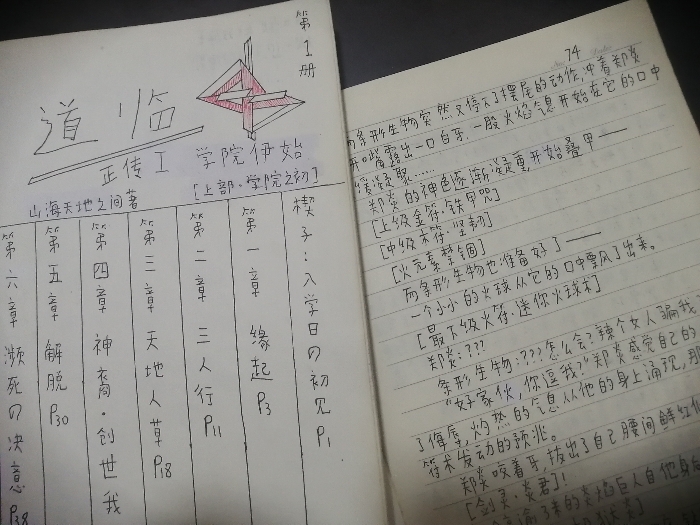 第1册
道临
正传I 学院伊始
[上部·学院之初]
山海天地之间著
楔子：入学日の初见P1
第一章 缘起P3
第二章 三人行P11
第三章 天地人草P18
第四章 神裔·创世我
第五章 解脱P30
第六章 濒死の决意P38
74
条形生物突然又停入了摆尾的动作，冲着郑炎
开嘴露出一口白牙，一股火焰气息开始在它的口中
缓缓凝聚……
郑炎的神色逐渐凝重，开始叠甲——
[上级金符·铁甲咒]
[中级木符·坚韧]
[火元素禁锢]
而条形生物也准备好了——
一个小小的火球从它的口中飘了出来。
[最下级火符·迷你火球术]
郑炎：???
条形生物：???怎么会？辣个女人骗我
“好家伙，你逗我？”郑炎感觉自己的
了侮辱，灼热的气息从他的身上涌现，那
符术发动的预兆。
郑炎咬着牙，拔出了自己腰间鲜红
[剑灵·炎君]!
的炎焰巨人自他身